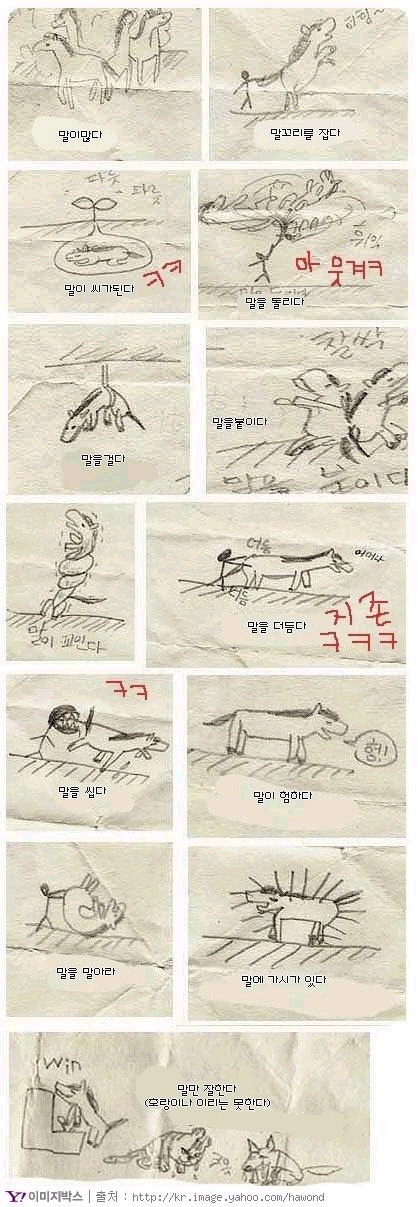 말이많다
히힝~
말꼬리를 잡다
파릇
파릇
말이 씨가된다
ㅋㅋ
마 웃겨ㅋ
말을 돌리다
말을걸다
찰싹
말을붙이다
말을 붙이다
말이 꼬인다
더듬
어머나
더듬
말을 더듬다
지존
ㅋㅋㅋ
ㅋㅋ
말을 씹다
험!!
말이 험하다
말을 말아라
말에 가시가 있다
win
말만 잘한다
(호랑이나 이리는 못한다)
Y! 이미지박스 | 출처 : http://kr.image.yahoo.com/hawond